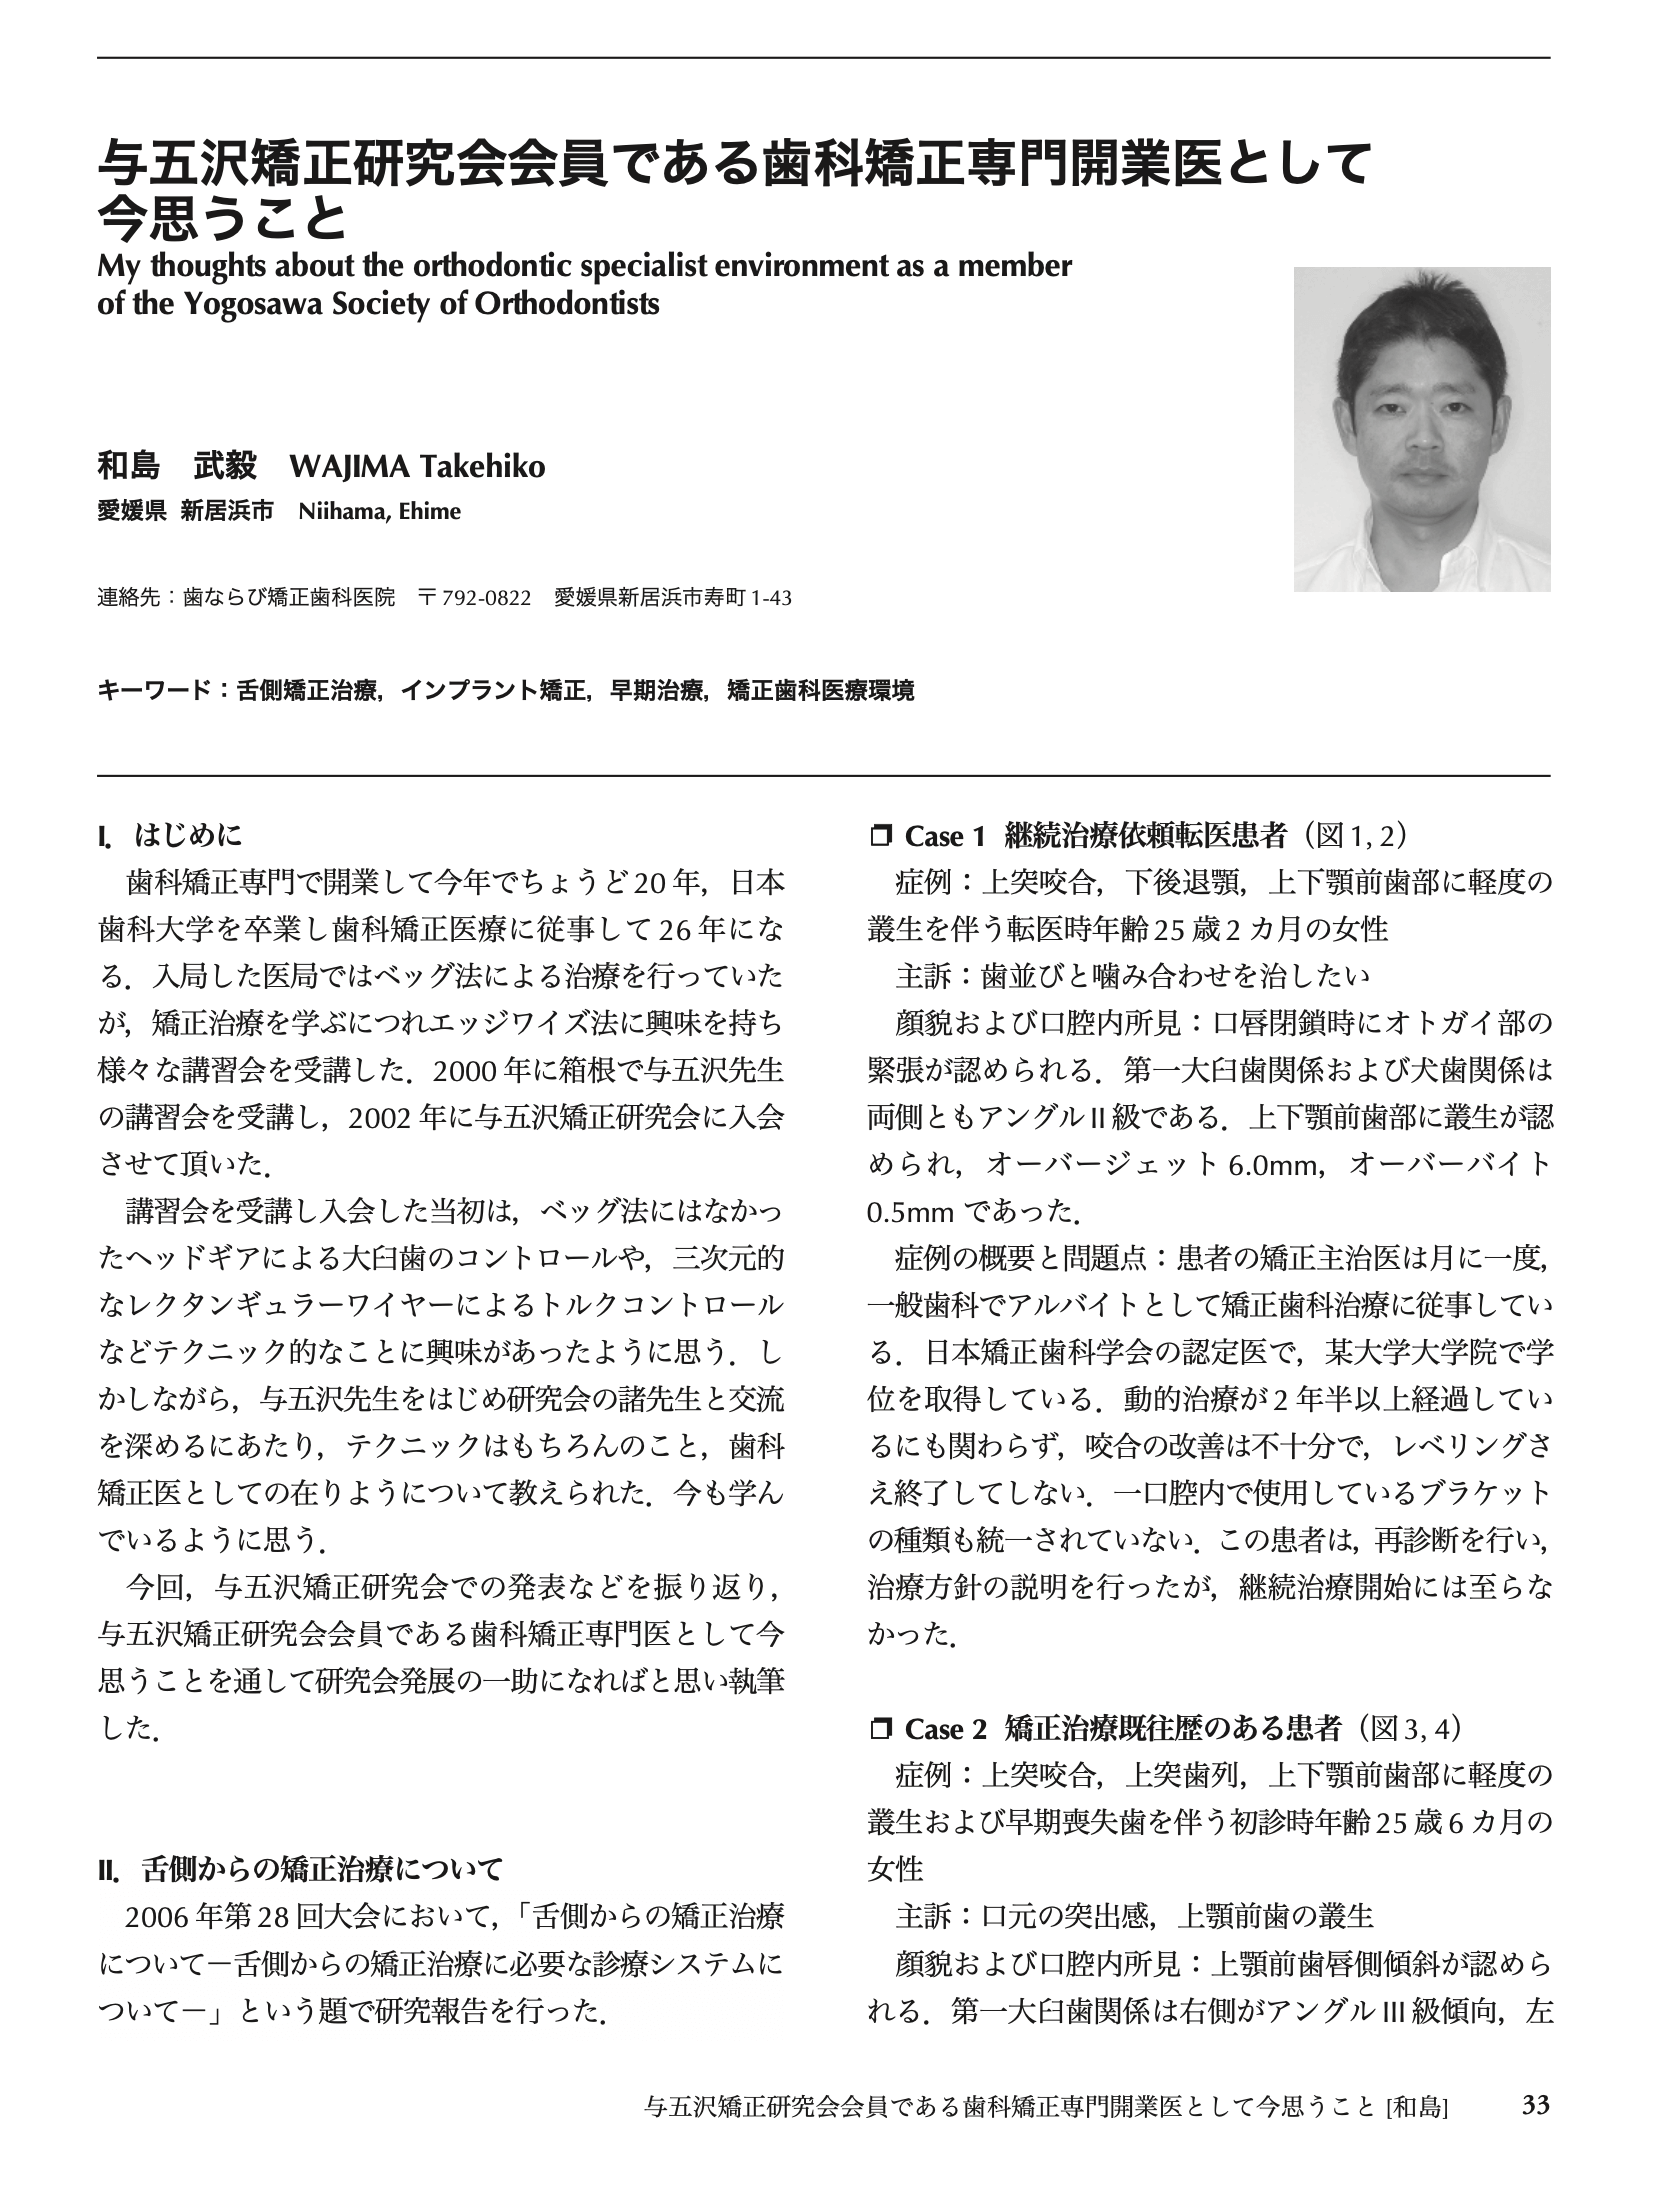 与五沢矯正研究会会員である歯科矯正専門開業医として
今思うこと
My thoughts about the orthodontic specialist environment as a member
of the Yogosawa Society of Orthodontists
和島　武毅　WAJIMA Takehiko
愛媛県 新居浜市　Niihama, Ehime
連絡先：歯ならび矯正歯科医院　〒792-0822　愛媛県新居浜市寿町1-43
キーワード：舌側矯正治療，インプラント矯正，早期治療，矯正歯科医療環境
I．はじめに
　歯科矯正専門で開業して今年でちょうど20年，日本
歯科大学を卒業し歯科矯正医療に従事して26年にな
る．入局した医局ではベッグ法による治療を行っていた
が，矯正治療を学ぶにつれエッジワイズ法に興味を持ち
様々な講習会を受講した．2000年に箱根で与五沢先生
の講習会を受講し，2002年に与五沢矯正研究会に入会
させて頂いた．
　講習会を受講し入会した当初は，ベッグ法にはなかっ
たヘッドギアによる大臼歯のコントロールや，三次元的
なレクタンギュラーワイヤーによるトルクコントロール
などテクニック的なことに興味があったように思う．し
かしながら，与五沢先生をはじめ研究会の諸先生と交流
を深めるにあたり，テクニックはもちろんのこと，歯科
矯正医としての在りようについて教えられた．今も学ん
でいるように思う．
　今回，与五沢矯正研究会での発表などを振り返り，
与五沢矯正研究会会員である歯科矯正専門医として今
思うことを通して研究会発展の一助になればと思い執筆
した．
II．舌側からの矯正治療について
　2006年第28回大会において，「舌側からの矯正治療
について－舌側からの矯正治療に必要な診療システムに
ついて－」という題で研究報告を行った．
❒ Case 1 継続治療依頼転医患者（図1, 2）
　症例：上突咬合，下後退顎，上下顎前歯部に軽度の
叢生を伴う転医時年齢25歳2カ月の女性
　主訴：歯並びと噛み合わせを治したい
　顔貌および口腔内所見：口唇閉鎖時にオトガイ部の
緊張が認められる．第一大臼歯関係および犬歯関係は
両側ともアングルII級である．上下顎前歯部に叢生が認
められ，オーバージェット6.0mm，オーバーバイト
0.5mmであった．
　症例の概要と問題点：患者の矯正主治医は月に一度，
一般歯科でアルバイトとして矯正歯科治療に従事してい
る．日本矯正歯科学会の認定医で，某大学大学院で学
位を取得している．動的治療が2年半以上経過してい
るにも関わらず，咬合の改善は不十分で，レベリングさ
え終了してしない．一口腔内で使用しているブラケット
の種類も統一されていない．この患者は，再診断を行い，
治療方針の説明を行ったが，継続治療開始には至らな
かった．
❒ Case 2 矯正治療既往歴のある患者（図3, 4）
　症例：上突咬合，上突歯列，上下顎前歯部に軽度の
叢生および早期喪失歯を伴う初診時年齢25歳6カ月の
女性
　主訴：口元の突出感，上顎前歯の叢生
　顔貌および口腔内所見：上顎前歯唇側傾斜が認めら
れる．第一大臼歯関係は右側がアングルIII級傾向，左
与五沢矯正研究会会員である歯科矯正専門開業医として今思うこと [和島]　33